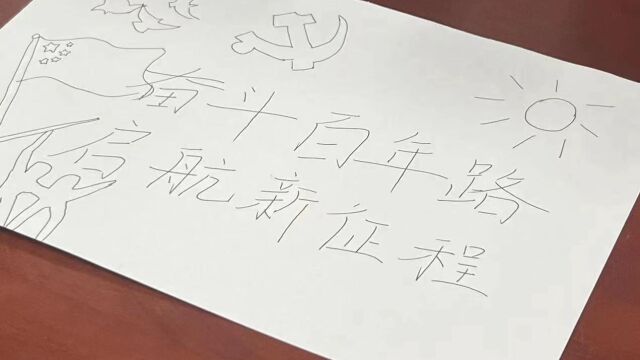 奋斗百年路
启航新征程